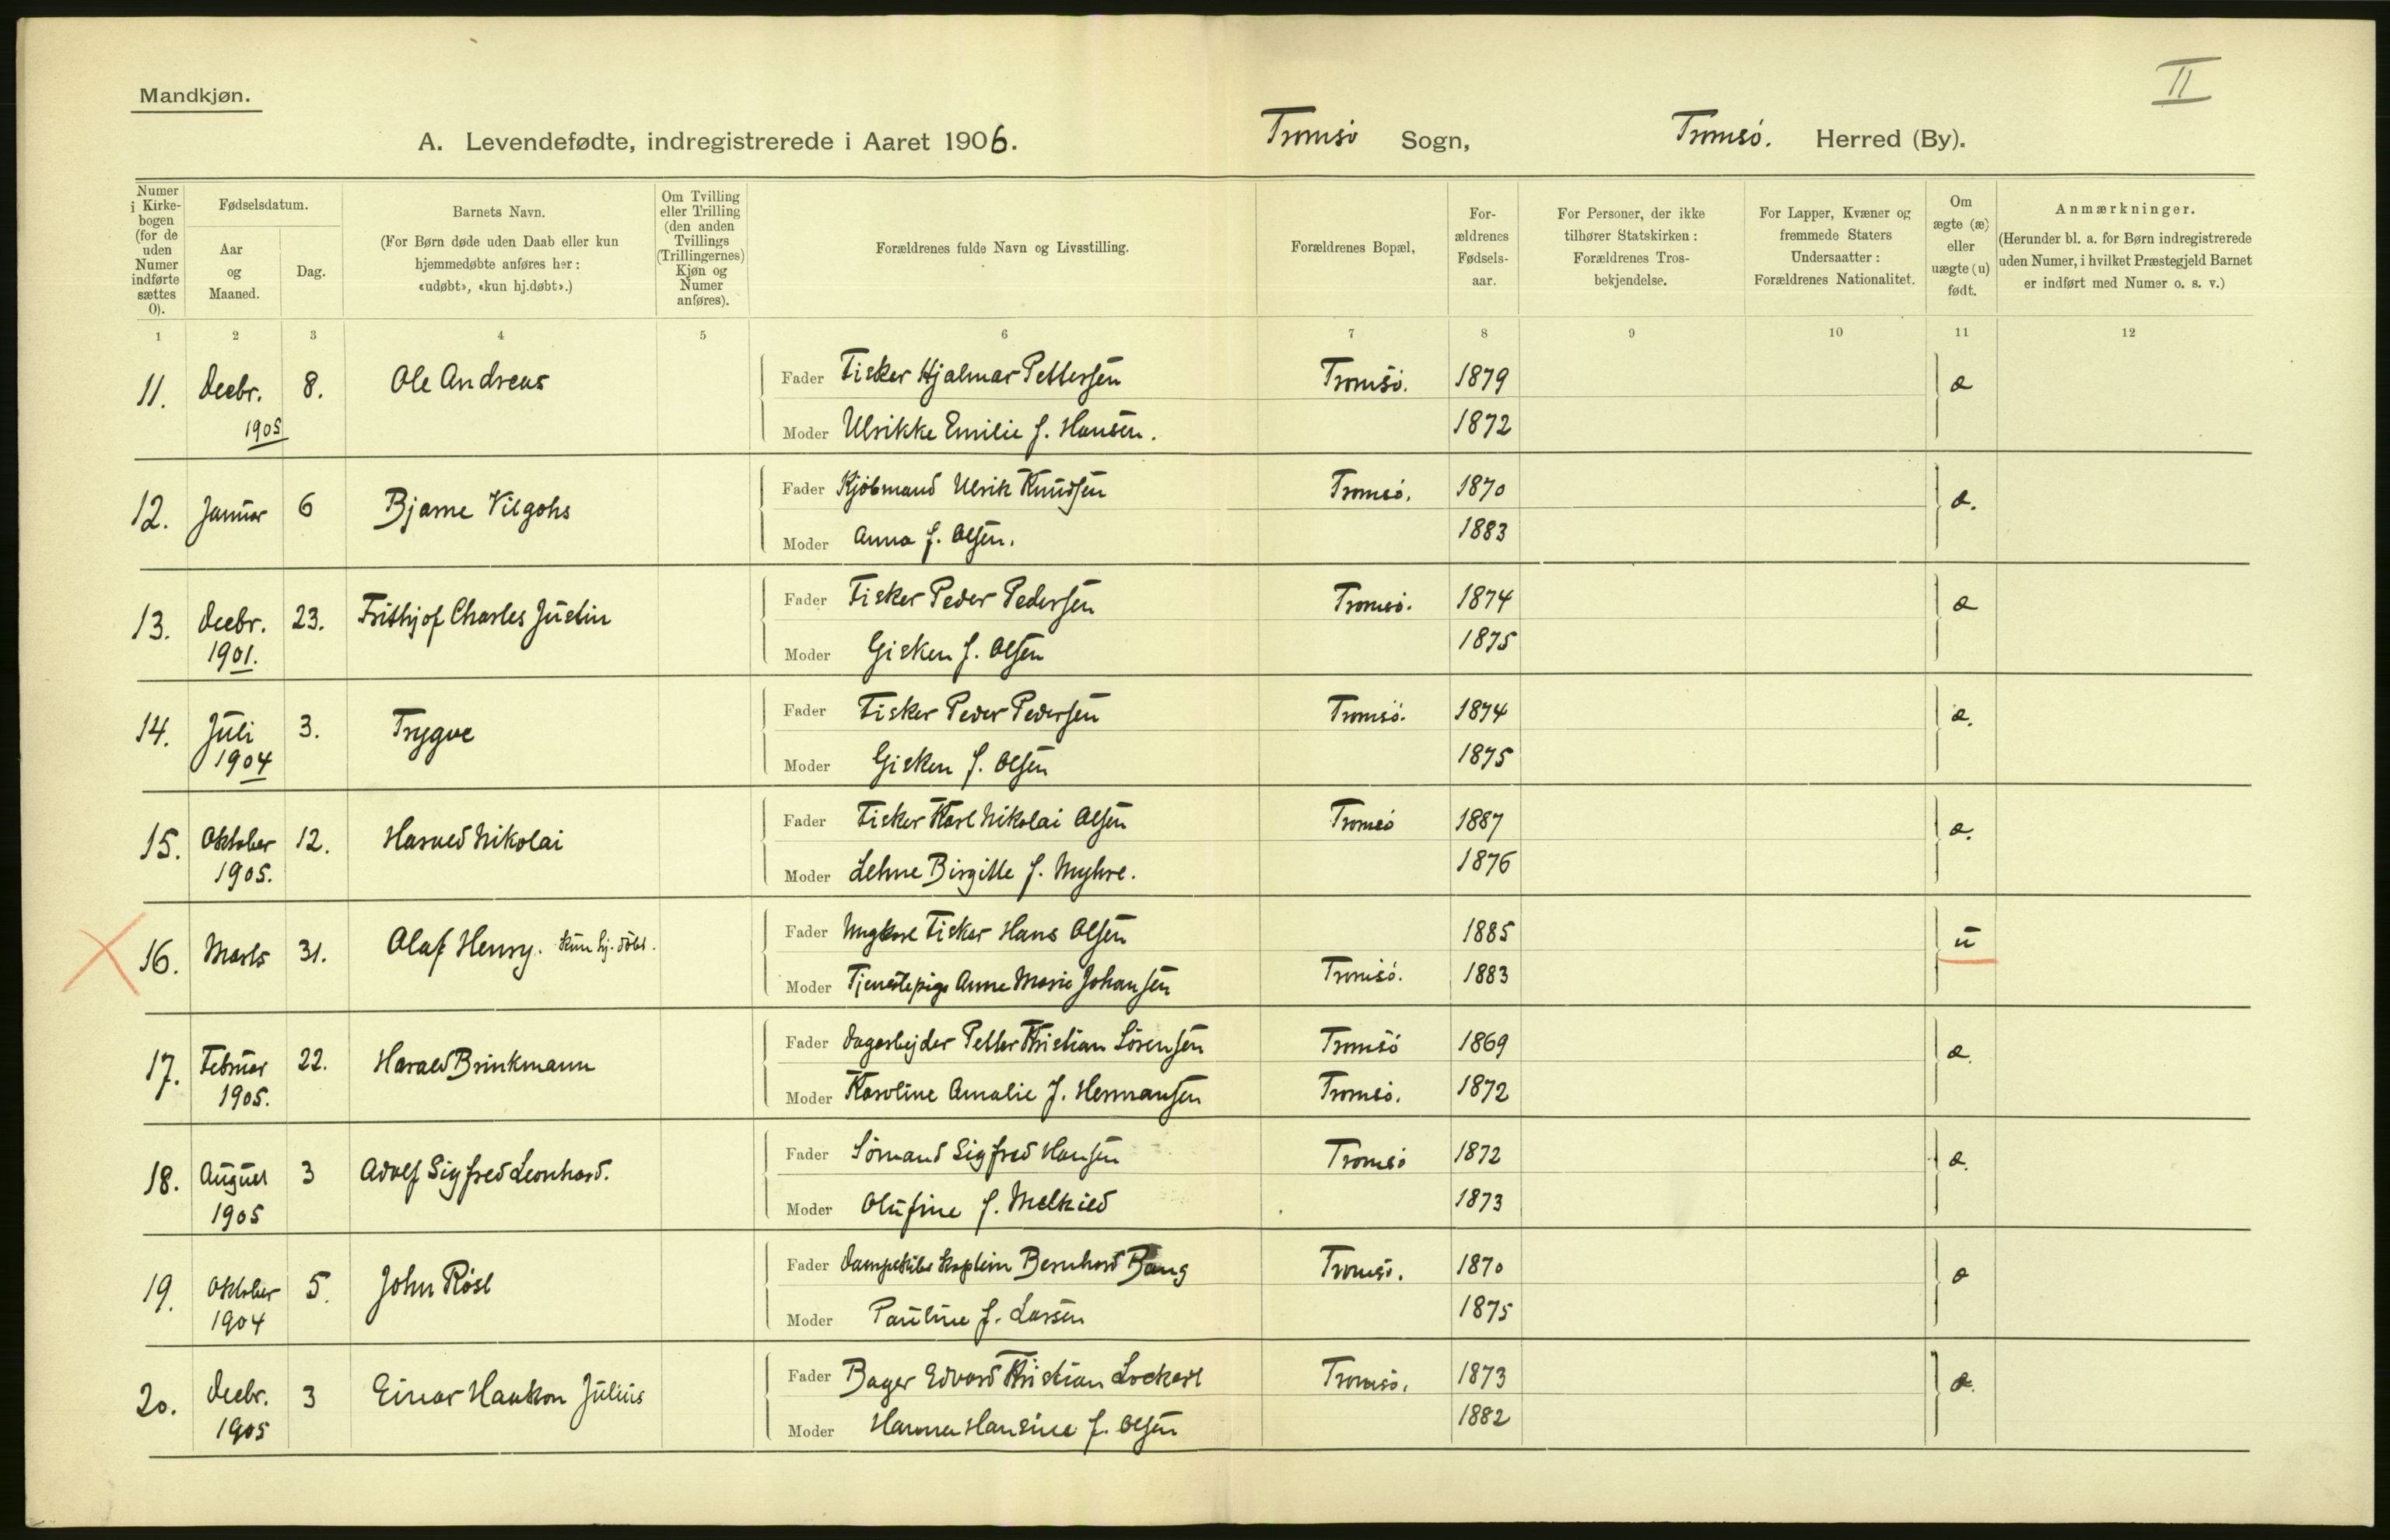 II
Mandkjøn.
A. Levendefødte, indregistrerede i Aaret 1906. Tromsø Sogn, Tromsø. Herred (By).
Numer i Kirke-bogen (for de uden Numer indførte sættes 0).
Fødselsdatum.
Aar og Maaned.
Dag.
Barnets Navn.
(For Børn døde uden Daab eller kun
hjemmedøbte anføres her:
«udøbt», «kun hj.døbt».)
Om Tvilling
eller Trilling
(den anden
Tvillings
(Trillingernes)
Kjøn og
Numer
anføres).
Forældrenes fulde Navn og Livsstilling.
Forældrenes Bopæl,
For-
ældrenes
Fødsels-
aar.
For Personer, der ikke
tilhører Statskirken:
Forældrenes Tros-
bekjendelse.
For Lapper, Kvæner og
fremmede Staters
Undersaatter:
Forældrenes Nationalitet.
Om
ægte (æ)
eller
uægte (u)
født.
Anmærkninger.
(Herunder bl. a. for Børn indregistrerede
uden Numer, i hvilket Præstegjeld Barnet
er indført med Numer o. s. v.)
1 2 3 4 5 6 7 8 9 10 11 12
11. Decbr. 8. Ole Andreas Fader Fisker Hjalmar Pettersen Tromsø. 1879 æ
1905 Moder Ulrikke Emilie f. Hansen. 1872
12. Januar 6 Bjarne Fader Kjøbmand Ulrik Knudsen Tromsø. 1870 æ.
Moder Anna f. Olsen. 1883
13. Decbr. 23. Frithjof Charles Justin Fader Fisker Peder Pedersen Tromsø. 1874 æ
1901. Moder Gisken f. Olsen 1875
14. Juli 3. Trygve Fader Fisker Peder Pedersen Tromsø. 1874 æ.
1904 Moder Gisken f. Olsen 1875
15. Oktober 12. Harald Nikolai Fader Fisker Karl Nikolai Olsen Tromsø 1887 æ.
1905. Moder Birgitte f. Myhre. 1876
16. Marts 31. Olaf Henry. kun hj.døbt. Fader Ungkarl Fisker Hans Olsen 1885 u
Moder Tjenestepige Anne Marie Johansen Tromsø. 1883
17. Februar 22. Harald Brinkmann Fader Dagarbejder Petter Kristian Sörensen Tromsø 1869 æ.
1905. Moder Karoline Amalie f. Hermansen Tromsø. 1872
18. August 3 Adolf Sigfred Leonhard. Fader Sömand Sigfred Hansen Tromsø 1872 æ.
1905 Moder Olufine f. 1873
19. Oktober 5. John Fader Dampskibskaptein Bernhard Bang Tromsø. 1870 æ
1904 Moder Pauline f. Larsen 1875
20. Decbr. 3 Einar Haakon Julius Fader Bager Edvard Kristian Lockert Tromsø. 1873 æ.
1905 Moder Hanna Hansine f. Olsen 1882